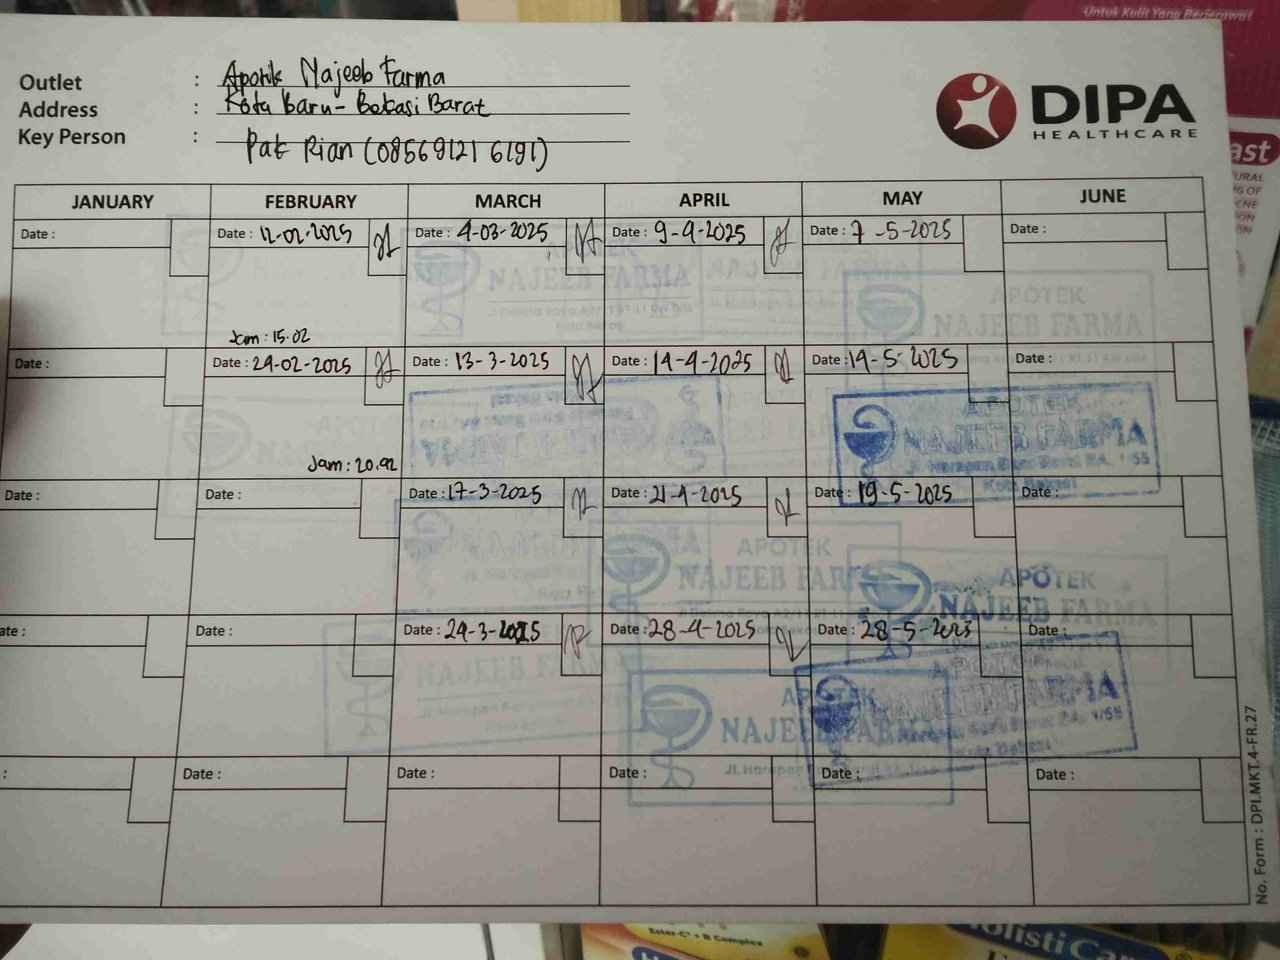 Untuk Kulit Yang Berjerawat
Outlet : Apotik Najeeb Farma
Address : Kota Baru - Bekasi Barat
Key Person : Pak Rian (085691216191)
DIPA
HEALTHCARE
JANUARY FEBRUARY MARCH APRIL MAY JUNE
Date : Date : 12-02-2025 Date : 4-03-2025 Date : 9-4-2025 Date : 7-5-2025 Date :
Jam : 15.02
Date : Date : 24-02-2025 Date : 13-3-2025 Date : 14-4-2025 Date : 14-5-2025 Date :
Jam : 20.42
Date : Date : Date : 17-3-2025 Date : 21-4-2025 Date : 19-5-2025 Date :
ate : Date : Date : 24-3-2025 Date : 28-4-2025 Date : 28-5-2025 Date :
: Date : Date : Date : Date : Date :
APOTEK
NAJEEB FARMA
APOTEK
NAJEEB FARMA
APOTEK
NAJEEB FARMA
APOTEK
NAJEEB FARMA
APOTEK
NAJEEB FARMA
NAJEEB FARMA
NAJEEB FARMA
No. Form : DPI.MKT.4-FR.27
ast
Ester-C® + B Complex